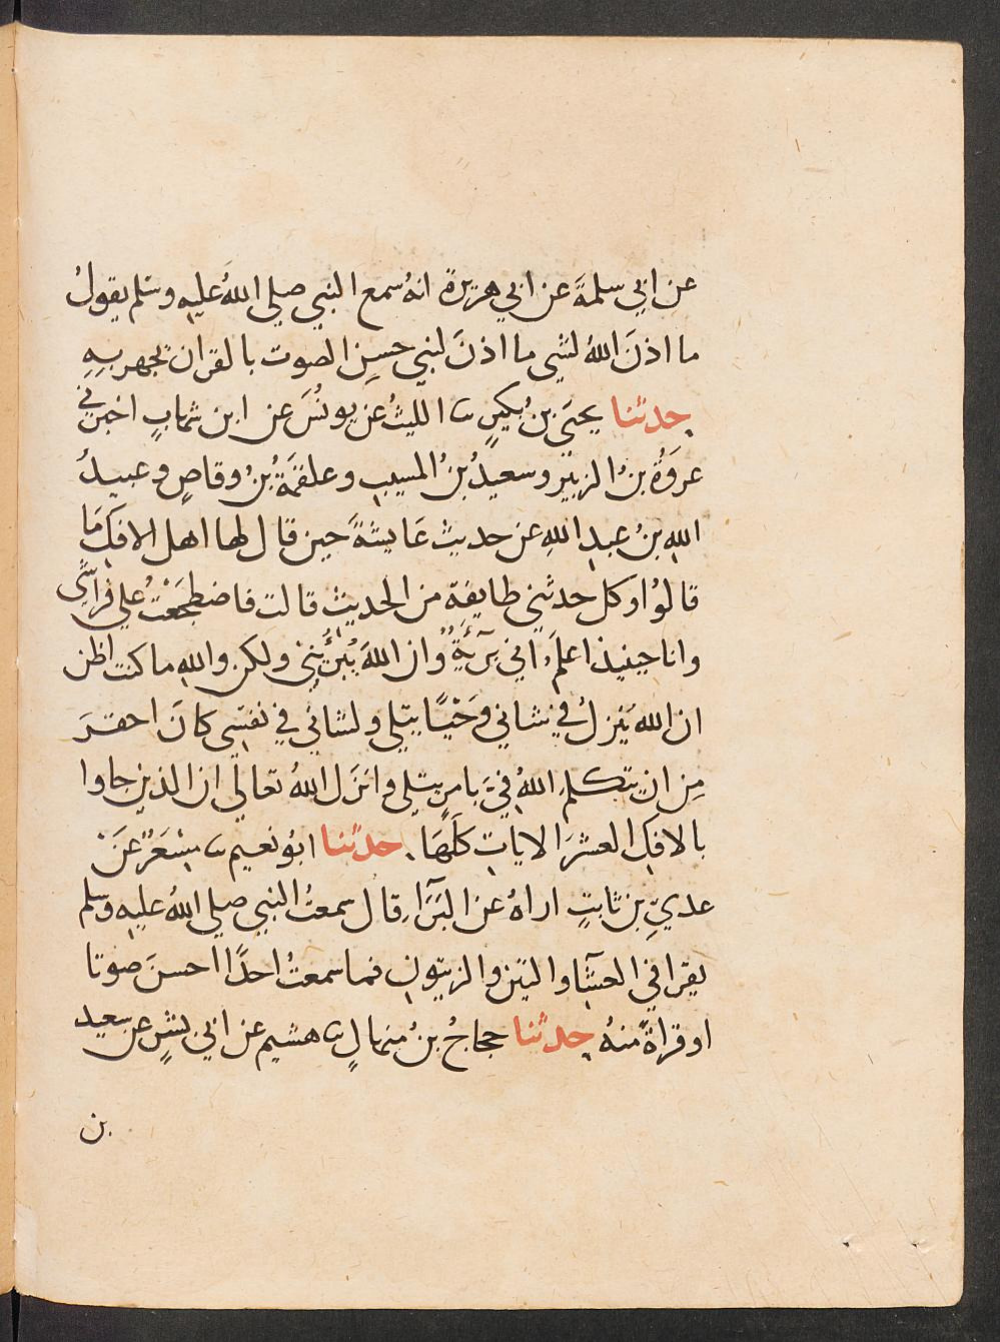 عن ابي سلمةَ عن ابي هريرة انهُ سمع النبي صلي اللهُ عليه وسلم يقولُ
ما اذنَ اللهُ لشي ما اذنَ لنبي حسنِ الصوت بالقران يجهر بهِ
حدثنا يحيَى بنُ بُكيرٍ ثنا الليثُ عن يونُسَ عن ابن شهابٍ اخبرني
عروَةُ بنُ الزبير وسعيدُ بنُ المسيب وعلقمَةُ بنُ وقاصٍ وعبيدُ
الله بنُ عبد اللهِ عن حديث عَايشةَ حين قال لها اهل الافك مَا
قالوُا وكل حدثني طايفة من الحديث قالت فاضطجَعْتُ علي فراشِي
وانا حينيذ اعلَم اني بَرِيَّةٌ وان اللهَ يُبَرِّئُنِي ولكن واللهِ ما كنت اظن
ان الله يَنزلُ في شاني وَحْيًا يتلي ولشاني في نفسِي كانَ احقرَ
مِن ان يتكلم اللهُ فيَّ بامرٍ يتلي وانزَل اللهُ تعالَي ان الذين جاوا
بالافك العشرَ الايات كلَهَا حدثنا ابوُ نعيم ثنا مِسْعَرٌ عَنْ
عديّ بن ثابتٍ اراهُ عن البَرَآءِ قال سمعتُ النبي صلي اللهُ عليه وسلم
يقرا في العشَآ والتين والزيتون فما سمعتُ احدًا احسنَ صَوتا
او قراةً منهُ حدثنا حجاجُ بنُ مِنهالٍ ثنا هشيم عن ابي بشرٍ عن سعيد
بن